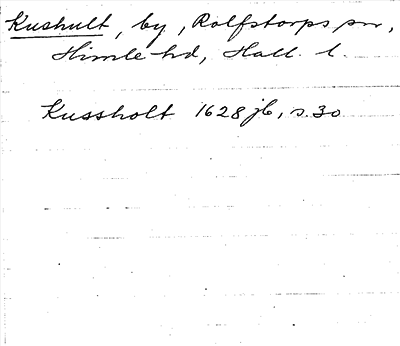 Kushult, by, Rolfstorps sn,
Himle hd, Hall. l.
Kussholt 1628 jb, s. 30